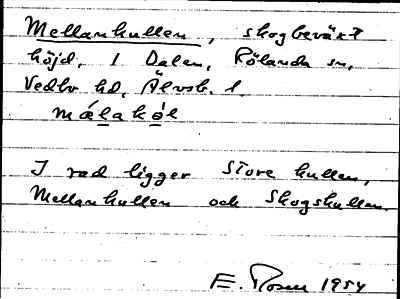 Mellankullen, skogbeväxt
höjd, i Dalen, Rölanda sn,
Vedbo hd, Älvsb. l.
málakól
I rad ligger Store kullen,
Mellankullen och Skogskullen.
E. Rosen 1954